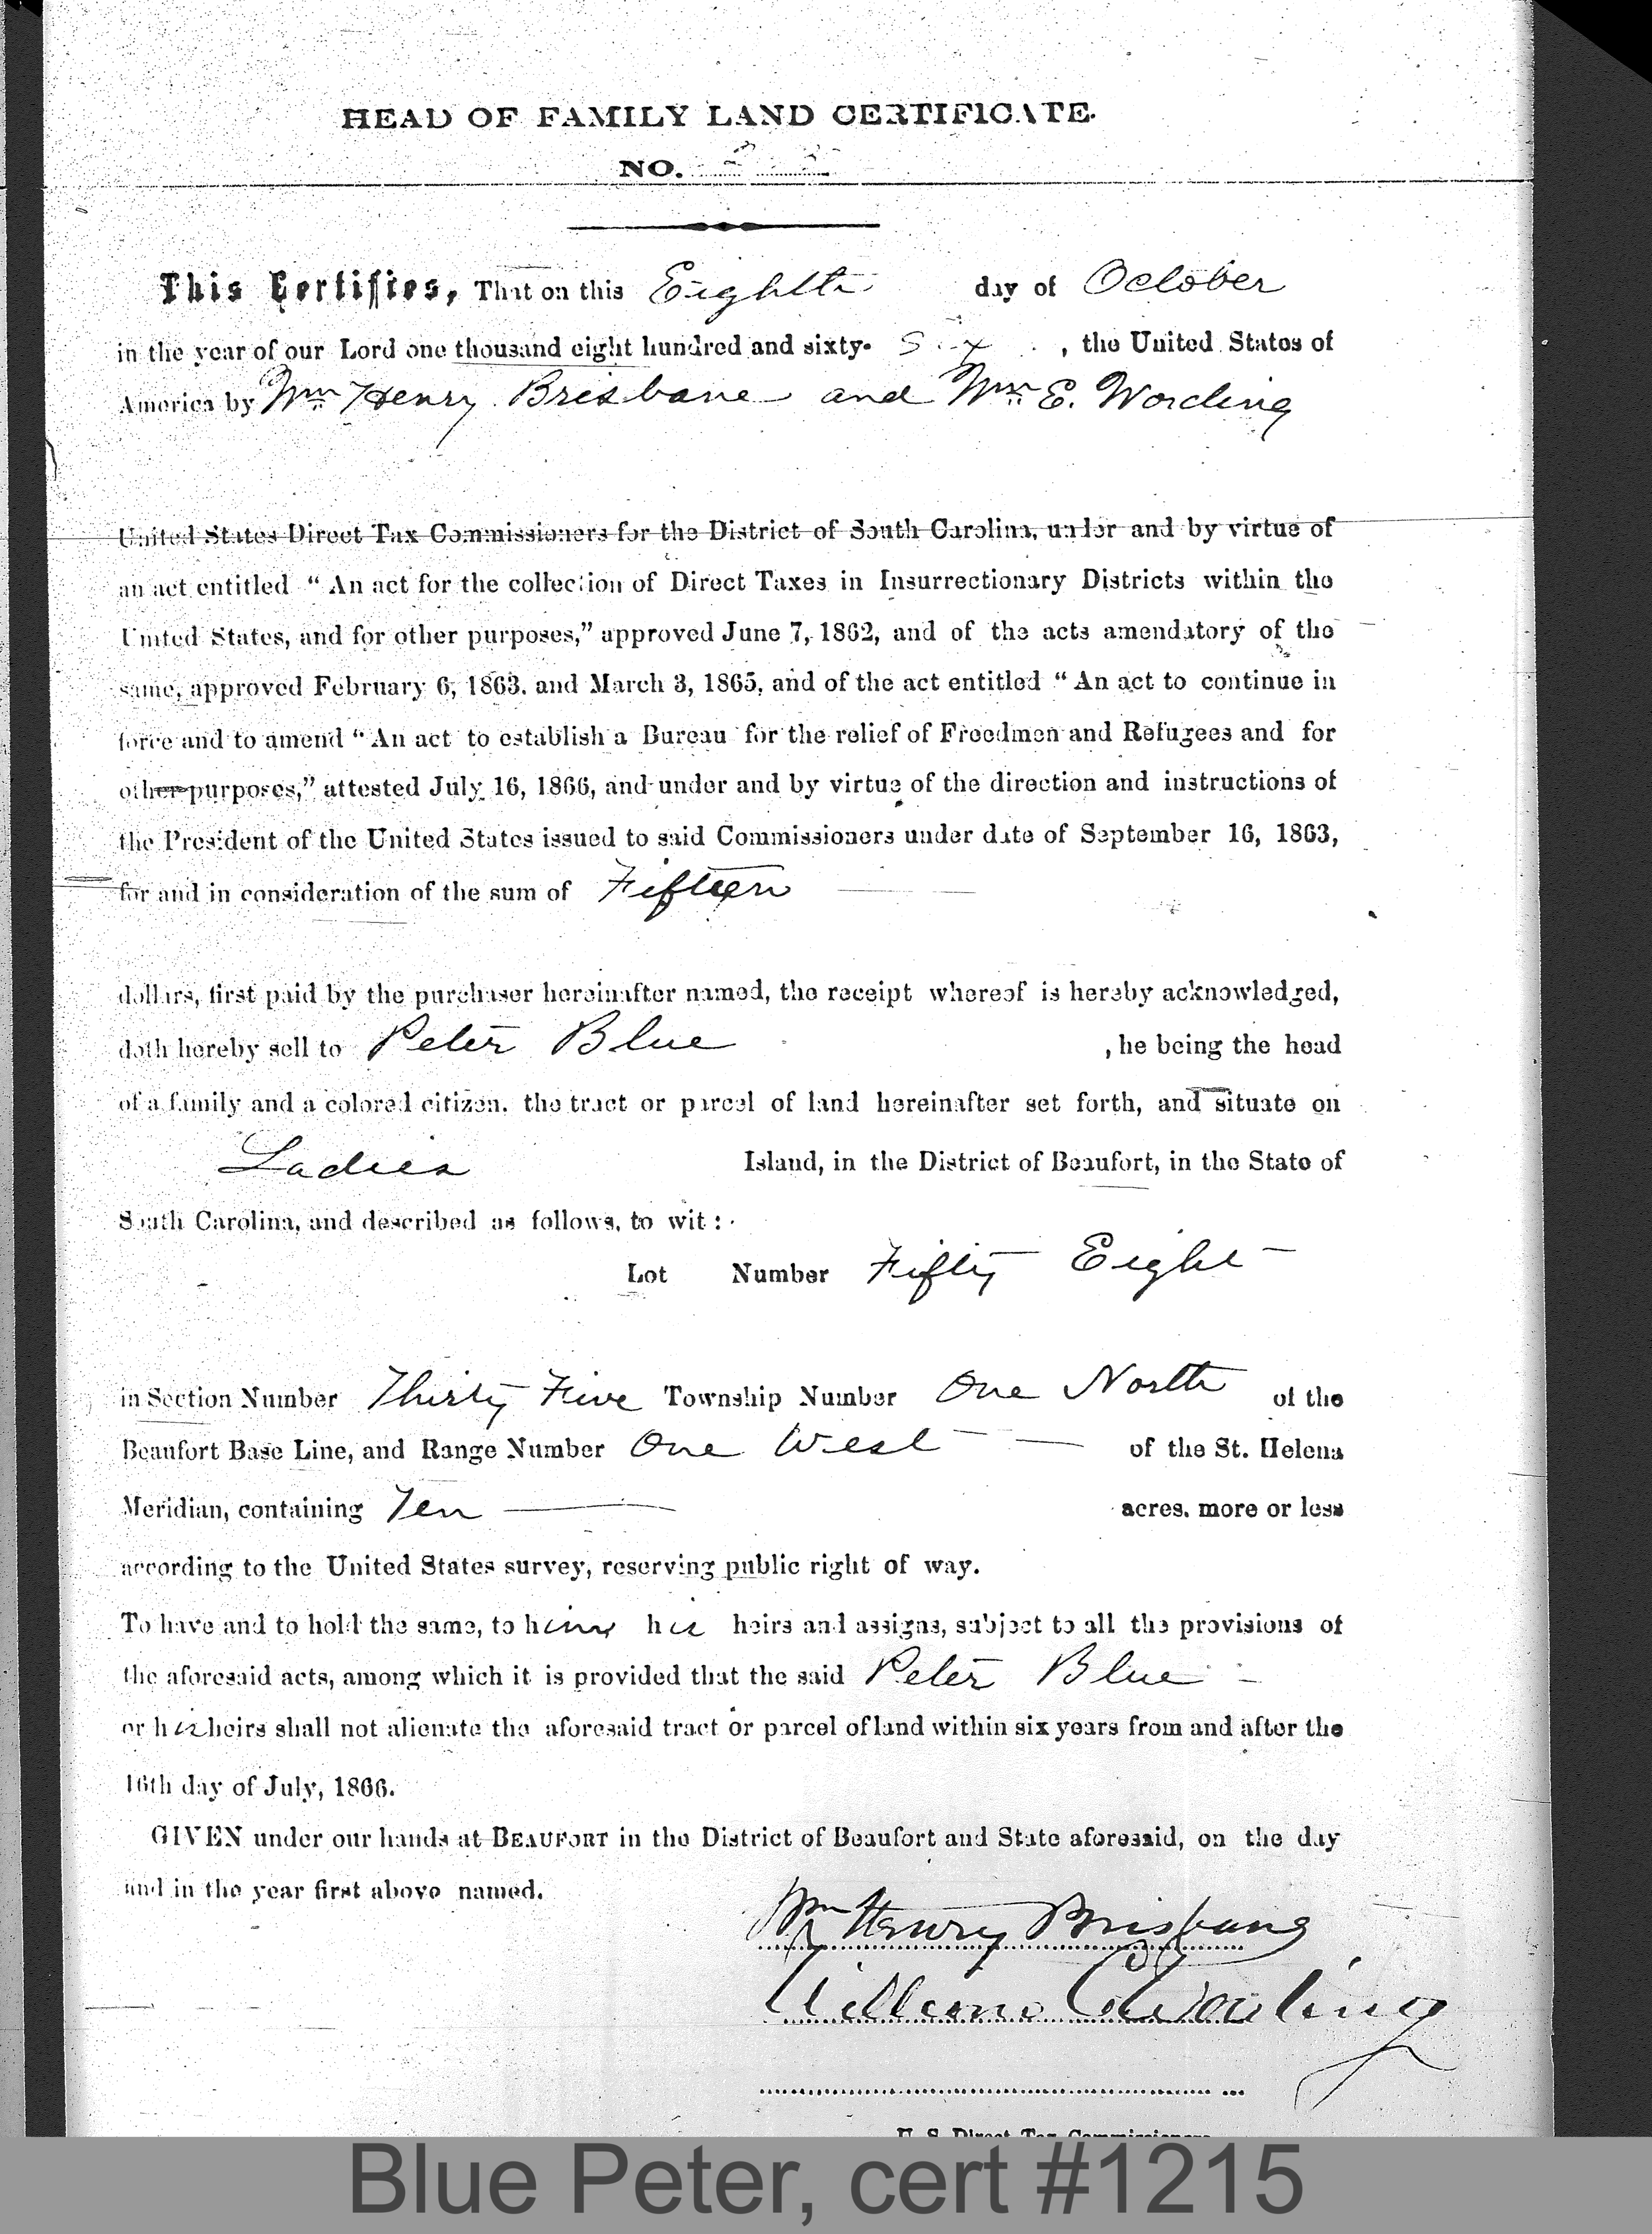 HEAD OF FAMILY LAND CERTIFICATE.
NO.
This Certifies, That on this Eighth day of October
in the year of our Lord one thousand eight hundred and sixty- Six , the United States of
America by Wm Henry Brisbane and Wm E. Wording
United States Direct Tax Commissioners for the District of South Carolina, under and by virtue of
an act entitled “ An act for the collection of Direct Taxes in Insurrectionary Districts within the
United States, and for other purposes,” approved June 7, 1862, and of the acts amendatory of the
same, approved February 6, 1863, and March 3, 1865, and of the act entitled “ An act to continue in
force and to amend “ An act to establish a Bureau for the relief of Freedmen and Refugees and for
other purposes,” attested July 16, 1866, and under and by virtue of the direction and instructions of
the President of the United States issued to said Commissioners under date of September 16, 1863,
for and in consideration of the sum of Fifteen
dollars, first paid by the purchaser hereinafter named, the receipt whereof is hereby acknowledged,
doth hereby sell to Peter Blue , he being the head
of a family and a colored citizen, the tract or parcel of land hereinafter set forth, and situate on
Ladies Island, in the District of Beaufort, in the State of
South Carolina, and described as follows, to wit :
Lot Number Fifty Eight
in Section Number Thirty Five Township Number One North of the
Beaufort Base Line, and Range Number One West of the St. Helena
Meridian, containing Ten acres, more or less
according to the United States survey, reserving public right of way.
To have and to hold the same, to him his heirs and assigns, subject to all the provisions of
the aforesaid acts, among which it is provided that the said Peter Blue
or his heirs shall not alienate the aforesaid tract or parcel of land within six years from and after the
16th day of July, 1866.
GIVEN under our hands at BEAUFORT in the District of Beaufort and State aforesaid, on the day
and in the year first above named.
Wm Henry Brisbane
William E. Wording
U. S. Direct Tax Commissioners
Blue Peter, cert #1215